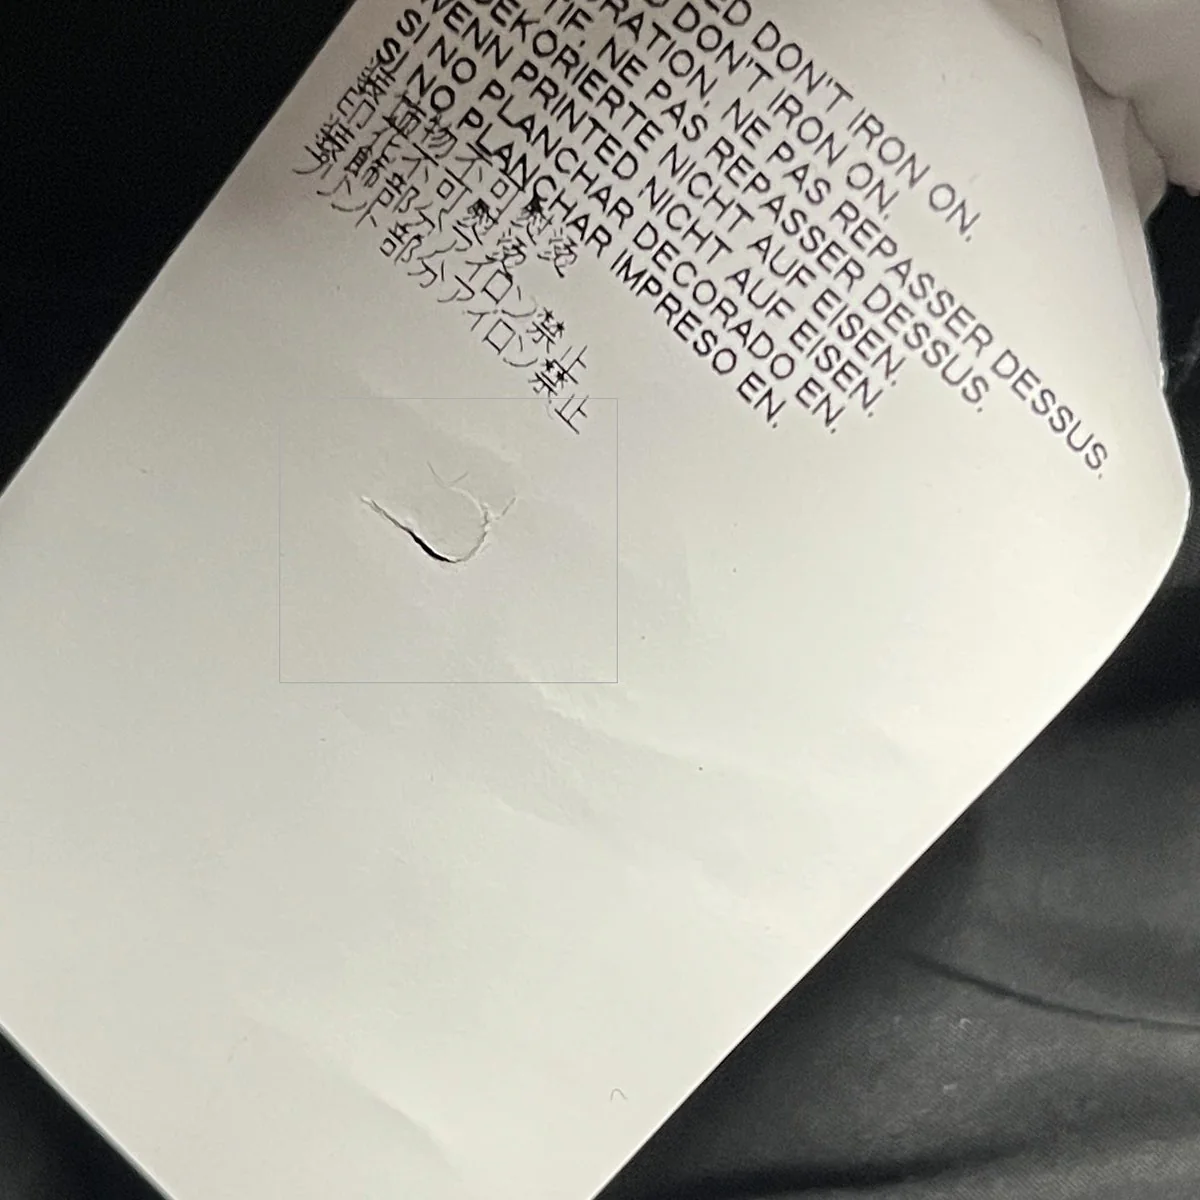 DON'T IRON ON.
DON'T IRON ON.
NE PAS REPASSER DESSUS.
NE PAS REPASSER DESSUS.
DEKORIERTE NICHT AUF EISEN.
WENN PRINTED NICHT AUF EISEN.
SI NO PLANCHAR DECORADO EN.
SI NO PLANCHAR IMPRESO EN.
物不可熨烫
印花不可熨烫
装飾部分アイロン禁止
プリント部分アイロン禁止